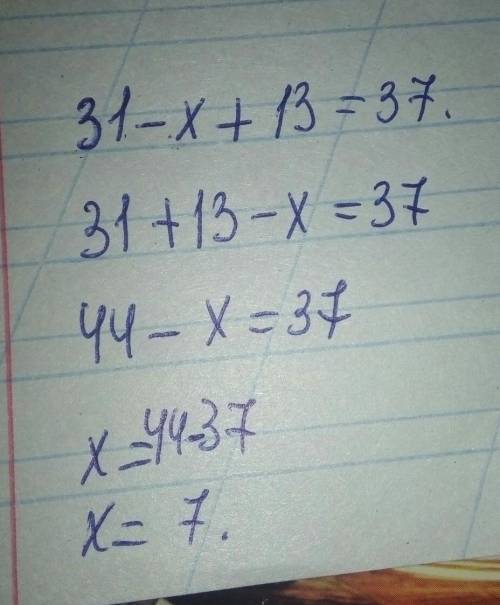 31 - x + 13 = 37.
31 + 13 - x = 37
44 - x = 37
x = 44-37
x = 7.